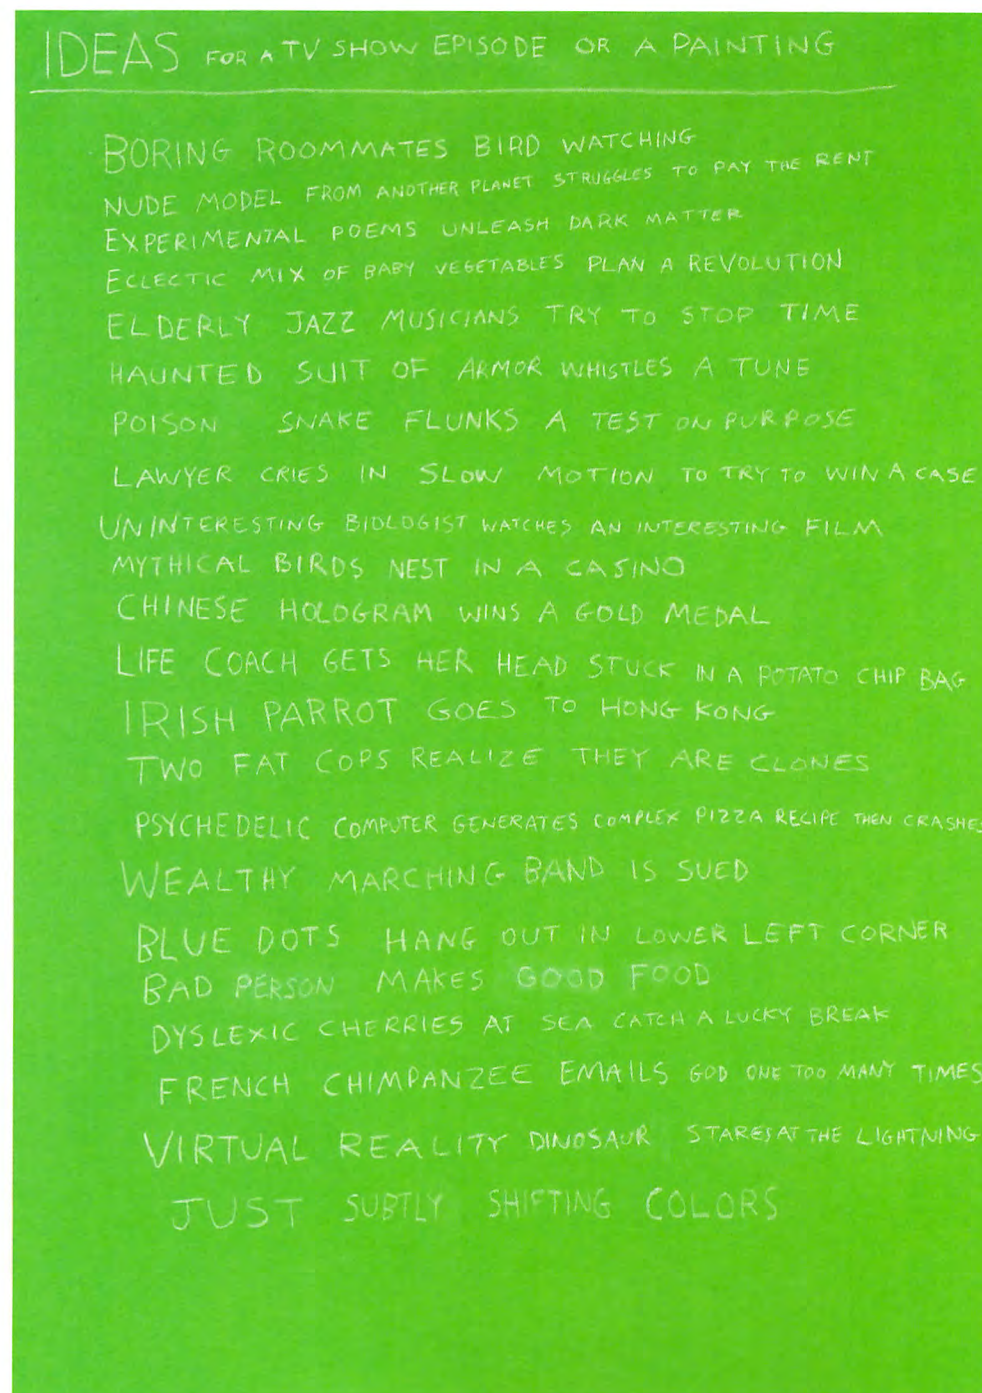 IDEAS FOR A TV SHOW EPISODE OR A PAINTING
BORING ROOMMATES BIRD WATCHING
NUDE MODEL FROM ANOTHER PLANET STRUGGLES TO PAY THE RENT
EXPERIMENTAL POEMS UNLEASH DARK MATTER
ECLECTIC MIX OF BABY VEGETABLES PLAN A REVOLUTION
ELDERLY JAZZ MUSICIANS TRY TO STOP TIME
HAUNTED SUIT OF ARMOR WHISTLES A TUNE
POISON SNAKE FLUNKS A TEST ON PURPOSE
LAWYER CRIES IN SLOW MOTION TO TRY TO WIN A CASE
UNINTERESTING BIOLOGIST WATCHES AN INTERESTING FILM
MYTHICAL BIRDS NEST IN A CASINO
CHINESE HOLOGRAM WINS A GOLD MEDAL
LIFE COACH GETS HER HEAD STUCK IN A POTATO CHIP BAG
IRISH PARROT GOES TO HONG KONG
TWO FAT COPS REALIZE THEY ARE CLONES
PSYCHEDELIC COMPUTER GENERATES COMPLEX PIZZA RECIPE THEN CRASHES
WEALTHY MARCHING BAND IS SUED
BLUE DOTS HANG OUT IN LOWER LEFT CORNER
BAD PERSON MAKES GOOD FOOD
DYSLEXIC CHERRIES AT SEA CATCH A LUCKY BREAK
FRENCH CHIMPANZEE EMAILS GOD ONE TOO MANY TIMES
VIRTUAL REALITY DINOSAUR STARES AT THE LIGHTNING
JUST SUBTLY SHIFTING COLORS